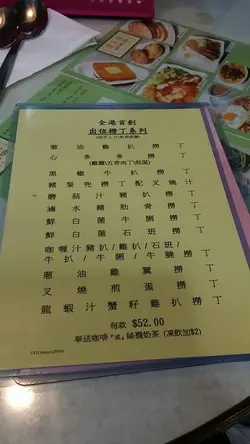 全港首創
出位撈丁系列
蔥油雞扒撈丁
心多多撈丁
黑椒牛扒撈丁
豬頸肉撈丁配叉燒汁
蘑菇汁豬扒撈丁
滷水豬肋骨撈丁
鮮白菌牛脷撈丁
鮮白菌石班撈丁
咖喱汁豬扒/雞扒/石班/
牛扒/牛脷/牛腩撈丁
蔥油雞翼撈丁
叉燒煎蛋撈丁
龍蝦汁蟹籽雞扒撈丁
每款 $52.00
奉送咖啡『或』絲襪奶茶 (凍飲加$2)